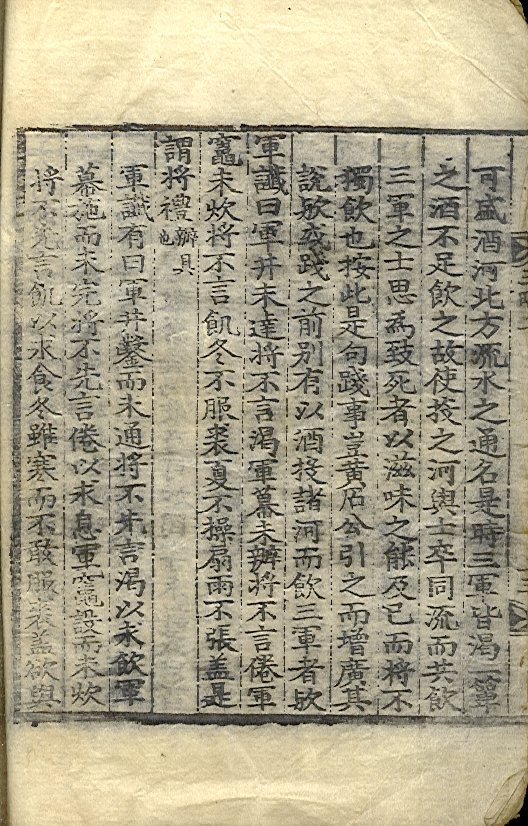 可盛酒河北方流水之通名是時三軍皆渴一簞
之酒不足飲之故使投之河與士卒同流而共飲
三軍之士思爲致死者以滋味之能及己而將不
獨飲也按此是句踐事豈黃石公引之而增廣其
說歟或踐之前別有以酒投諸河而飲三軍者歟
軍讖曰軍井未達將不言渴軍幕未辦將不言倦軍
竈未炊將不言飢冬不服裘夏不操扇雨不張盖是
謂將禮辦具也
軍讖有曰軍井鑿而未通將不先言渴以求飲軍
幕施而未完將不先言倦以求息軍竈設而未炊
將不先言飢以求食冬雖寒而不敢服裘盖欲與